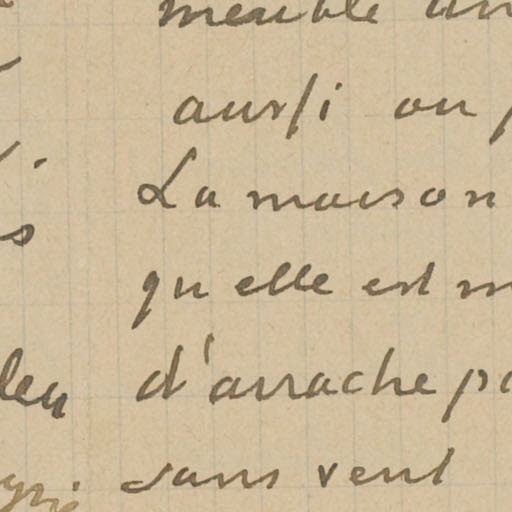 meuble un
aussi on
La maison
qu elle est m
d'arrache p
sans vent